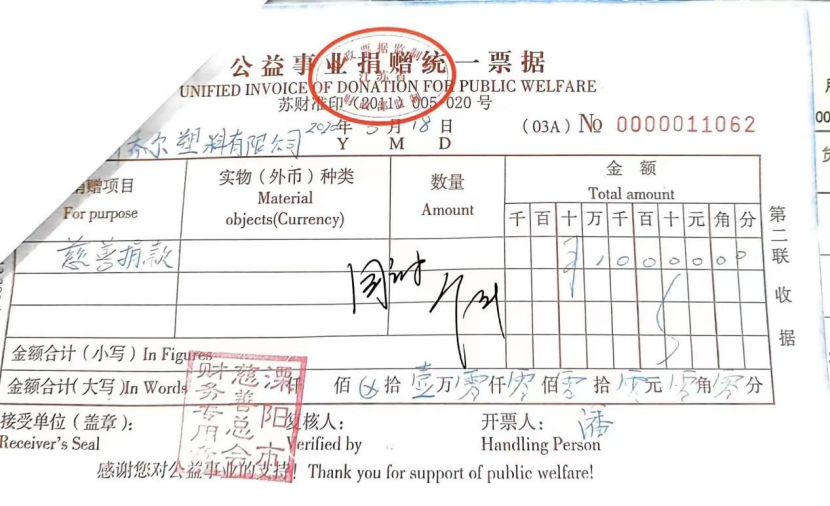 公益事业捐赠统一票据
UNIFIED INVOICE OF DONATION FOR PUBLIC WELFARE
苏财准印(2011)005-020号
乔尔塑料有限公司 年 月 18 日 (03A) No 0000011062
Y M D
捐赠项目 实物(外币)种类 数量 金额
For purpose Material objects(Currency) Amount Total amount
千 百 十 万 千 百 十 元 角 分
慈善捐款 1 0 0 0 0 0 0
金额合计(小写) In Figures
金额合计(大写) In Words 仟 佰 拾 壹万零仟零佰零拾零元零角零分
接受单位(盖章): 复核人: 开票人: 潘
Receiver's Seal Verified by Handling Person
感谢您对公益事业的支持! Thank you for support of public welfare!
第二联 收据
江苏省
溧阳市慈善总会财务专用章